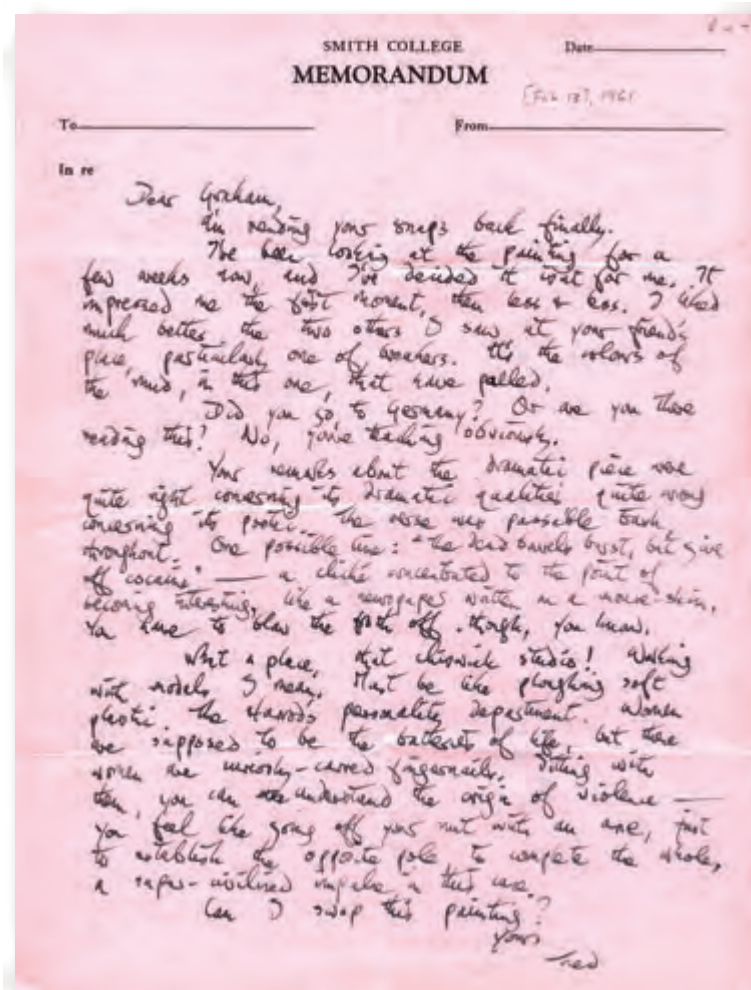 SMITH COLLEGE
Date
MEMORANDUM
[Feb 13?, 1961
To From
In re
Dear Graham,
I'm sending your snaps back finally.
I've been looking at the painting for a
few weeks now, and I've decided it isnt for me. It
impressed me the first moment, then less & less. I liked
much better the two others I saw at your friend's
place, particularly one of breakers. It's the colours of
the mud, in this one, that have palled.
Did you go to Germany? Or are you there
reading this! No, you're teaching obviously.
Your remarks about the dramatic piece were
quite right concerning its dramatic qualities quite wrong
concerning its poetic. The verse was passable
throughout. One possible line: "the dead burst, but give
off cocaine" — a cliché concentrated to the point of
becoming interesting, like a newspaper written on a mouse-skin.
You have to blow the froth off though, you know.
What a place, that chiswick studio! Working
with models I mean, Must be like ploughing soft
plastic. The Harrods personality department. Women
are supposed to be the of life, but these
women are -carved fingernails. Sitting with
them, you can understand the origin of violence —
you feel like going off your nut with an axe, just
to establish the opposite pole, to complete the whole,
a super-civilised impulse in this case.
Can I swop this painting?
Yours
Ted